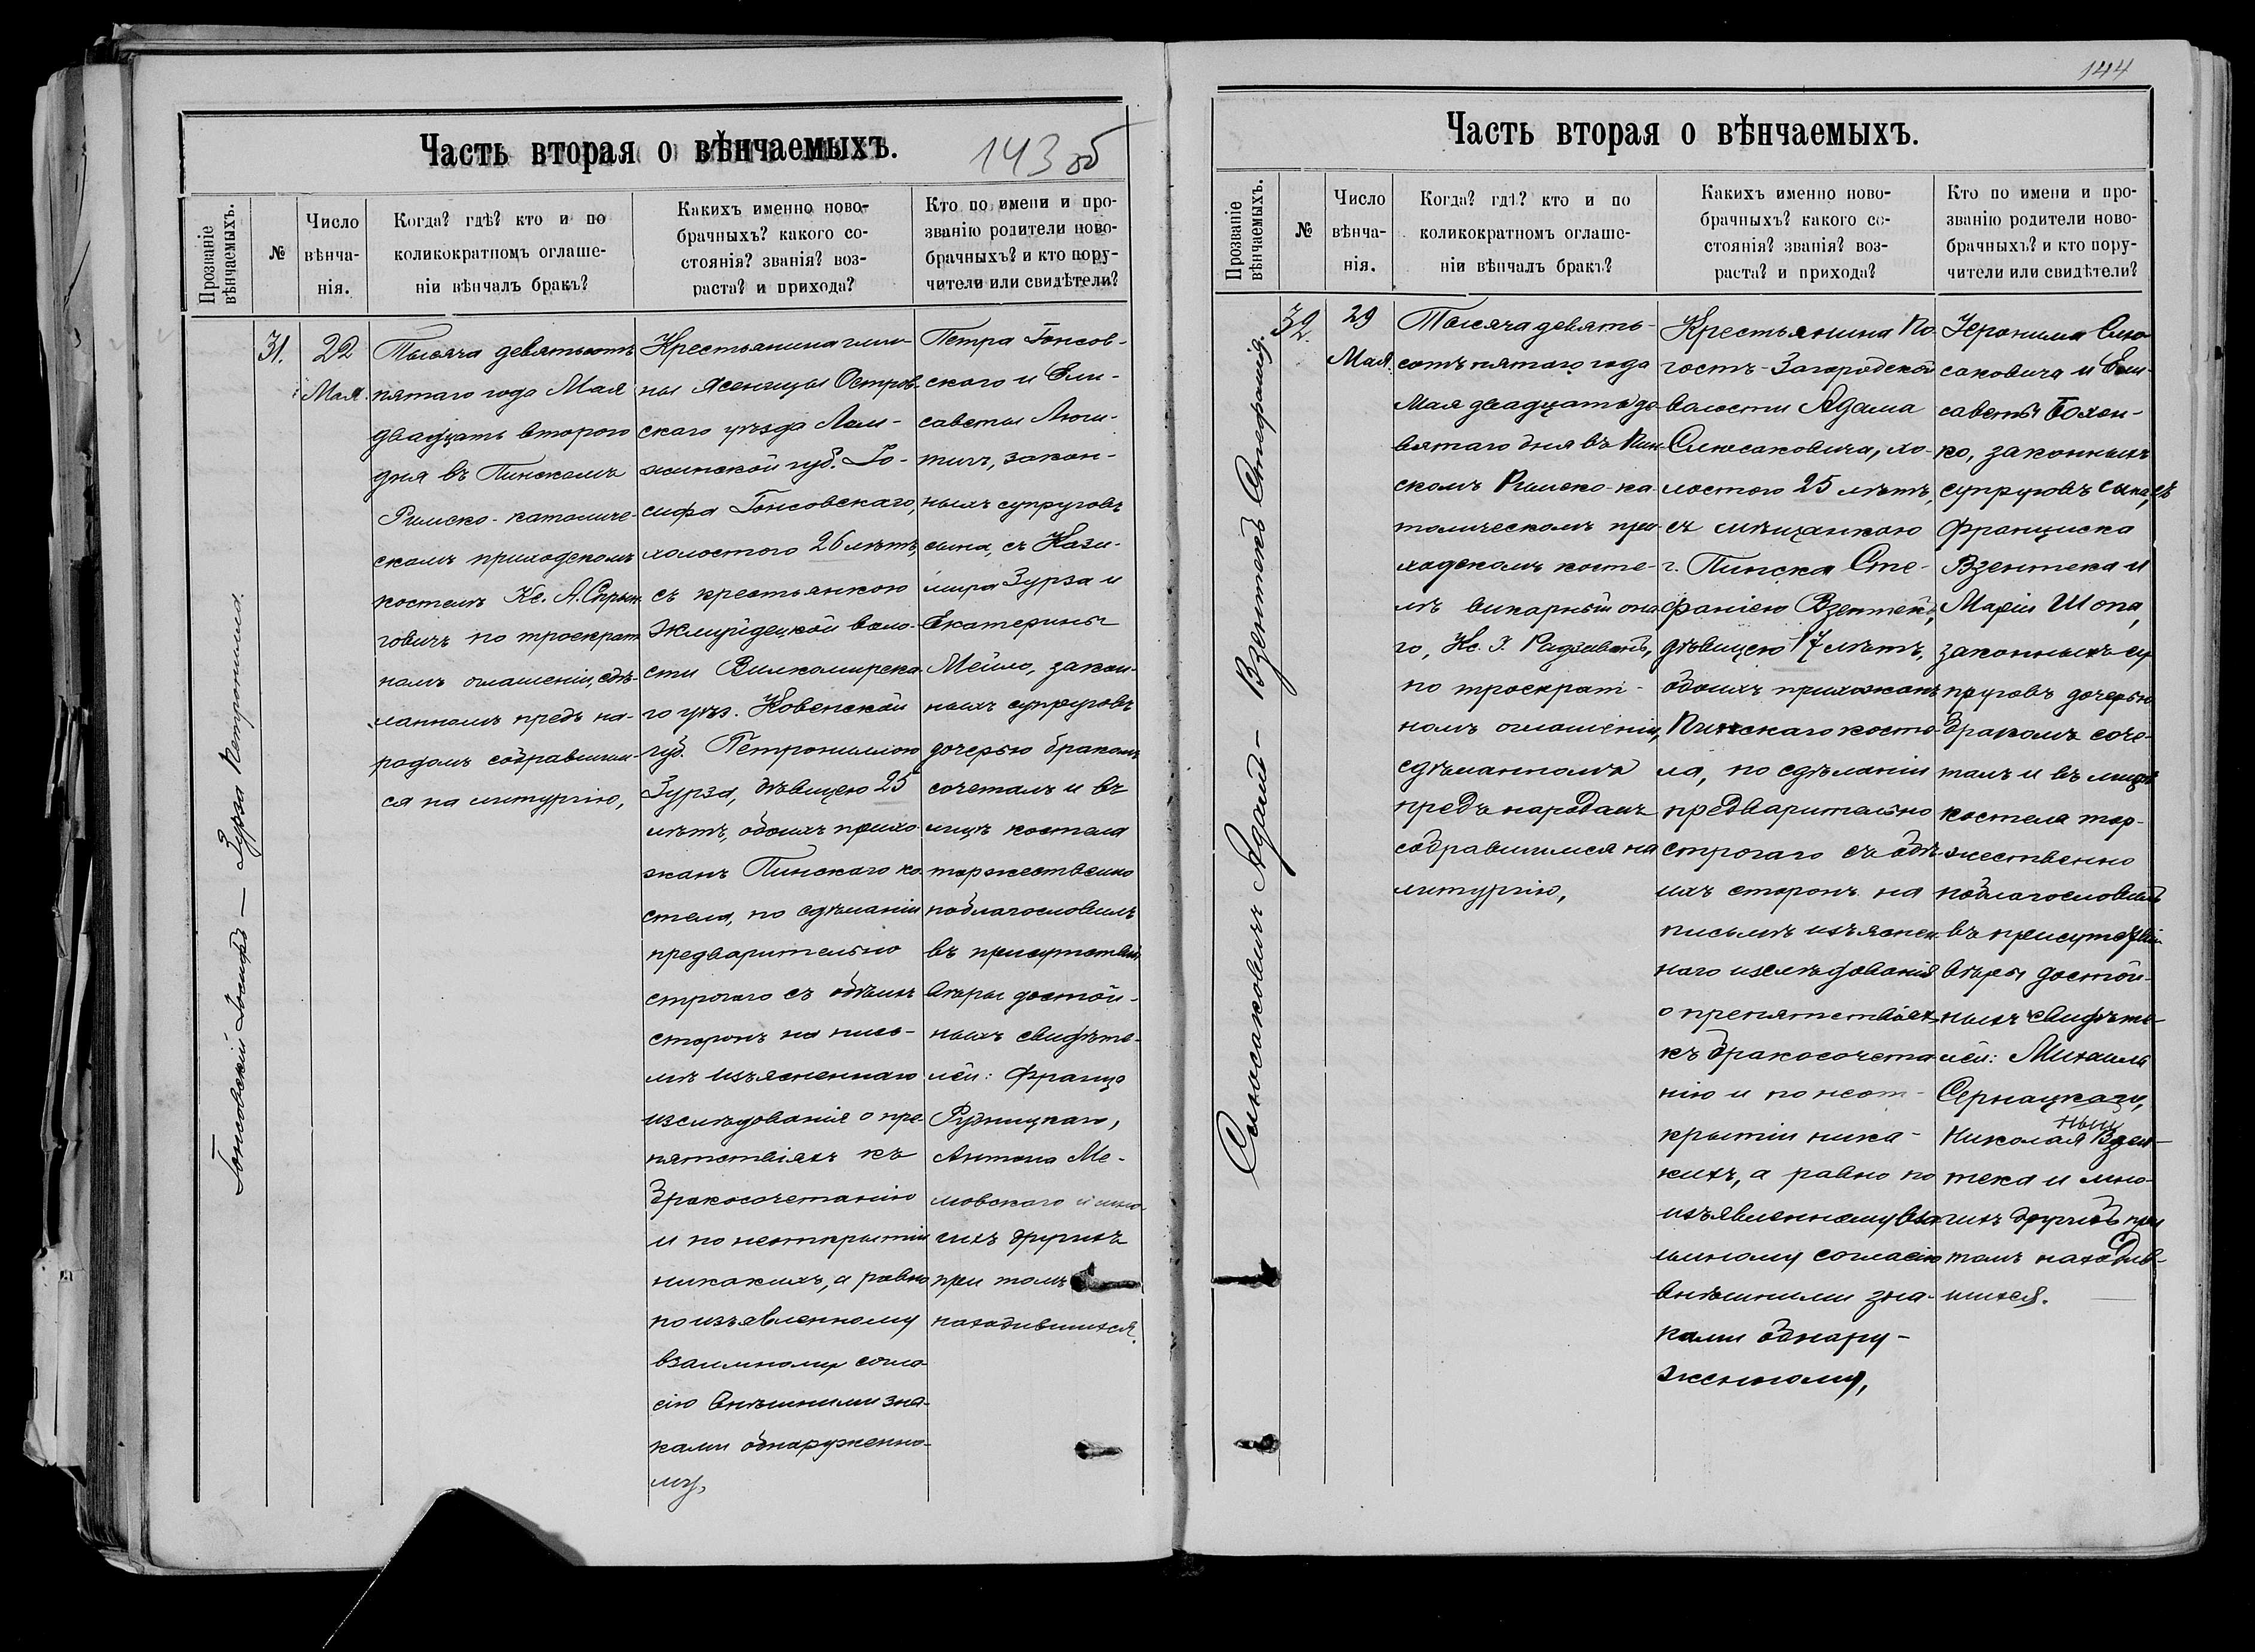 Часть вторая о вѣнчаемыхъ.
143 об
Прозваніе
вѣнчаемыхъ.
№
Число
вѣнча-
нія.
Когда? гдѣ? кто и по
коликократномъ оглаше-
ніи вѣнчалъ бракъ?
Какихъ именно ново-
брачныхъ? какого со-
стоянія? званія? воз-
раста? и прихода?
Кто по имени и про-
званію родители ново-
брачныхъ? и кто пору-
чители или свидѣтели?
Гонсовскій Іосифъ — Зурза Петронилла.
31.
22
Мая.
Тысяча девятьсотъ
пятаго года Мая
двадцать второго
дня въ Пинскомъ
Римско-католиче-
скомъ приходскомъ
костелѣ Кс. А.
говичъ по троекрат
номъ оглашеніи, сдѣ-
ланномъ предъ на-
родомъ собравшим-
ся на литургію,
Крестьянина гми-
ны Ясеницы Остров-
скаго уѣзда Лом-
жинской губ. Іо-
сифа Гонсовскаго,
холостого 26 лѣтъ
съ крестьянкою
Жмуйдецкой воло-
сти Вилкомирска
го уѣз. Ковенской
губ. Петрониллою
Зурза, дѣвицею 25
лѣтъ, обоихъ прихо
жанъ Пинскаго ко
стела, по сдѣланіи
предварительно
строгаго съ обѣихъ
сторонъ на пись-
мѣ изъясненнаго
изслѣдованія о пре-
пятствіяхъ къ
бракосочетанію
и по неоткрытіи
никакихъ, а равно
по изъявленному
взаимному согла-
сію внѣшними зна-
ками обнаруженно-
му,
Петра Гонсов-
скаго и Ели-
саветы Люти-
закон-
ныхъ супруговъ
сына, съ Кази-
мира Зурза и
Екатерины
Мейло, закон-
ныхъ супруговъ
дочерью бракомъ
сочеталъ и въ
лицѣ костела
торжественно
поблагословилъ
въ присутствіи
вѣры достой-
ныхъ свидѣте-
лей: Франца
Ружицкаго,
Антона Ме-
ловскаго и мно-
гихъ другихъ
при томъ
находившихся.
144
Часть вторая о вѣнчаемыхъ.
Прозваніе
вѣнчаемыхъ.
№
Число
вѣнча-
нія.
Когда? гдѣ? кто и по
коликократномъ оглаше-
ніи вѣнчалъ бракъ?
Какихъ именно ново-
брачныхъ? какого со-
стоянія? званія? воз-
раста? и прихода?
Кто по имени и про-
званію родители ново-
брачныхъ? и кто пору-
чители или свидѣтели?
Слюсаковичъ Адамъ — Взентекъ Стефанія.
32.
29
Мая.
Тысяча девять-
сотъ пятаго года
Мая двадцать де-
вятаго дня въ Пин-
скомъ Римско-ка-
толическомъ при-
ходскомъ косте-
лѣ викарный она
го, Кс. І.
по троекрат-
номъ оглашеніи,
сдѣланномъ
предъ народомъ
собравшимся на
литургію,
Крестьянина По-
гостъ-Загородской
волости Адама
Слюсаковича, хо-
лостого 25 лѣтъ,
съ мѣщанкою
г. Пинска Сте-
фаніею Взентекъ,
дѣвицею 17 лѣтъ,
обоихъ прихожанъ
Пинскаго косте-
ла, по сдѣланіи
предварительно
строгаго съ обѣ-
ихъ сторонъ на
письмѣ изъяснен
наго изслѣдованія
о препятствіяхъ
къ бракосочета-
нію и по неот-
крытіи ника-
кихъ, а равно по
изъявленному вза
имному согласію
внѣшними зна-
ками обнару-
женному,
Іеронима Слю-
саковича и Ели-
саветы Бохон-
ко, законныхъ
супруговъ сына, съ
Франциска
Взентека и
Маріи Шопа,
законныхъ су-
пруговъ дочерью
бракомъ соче-
талъ и въ лицѣ
костела тор-
жественно
поблагословилъ
въ присутствіи
вѣры достой-
ныхъ свидѣте-
лей: Михаила
Сернацкаго,
Николая Взен-
тека и мно-
гихъ другихъ при
томъ находив-
шихся.